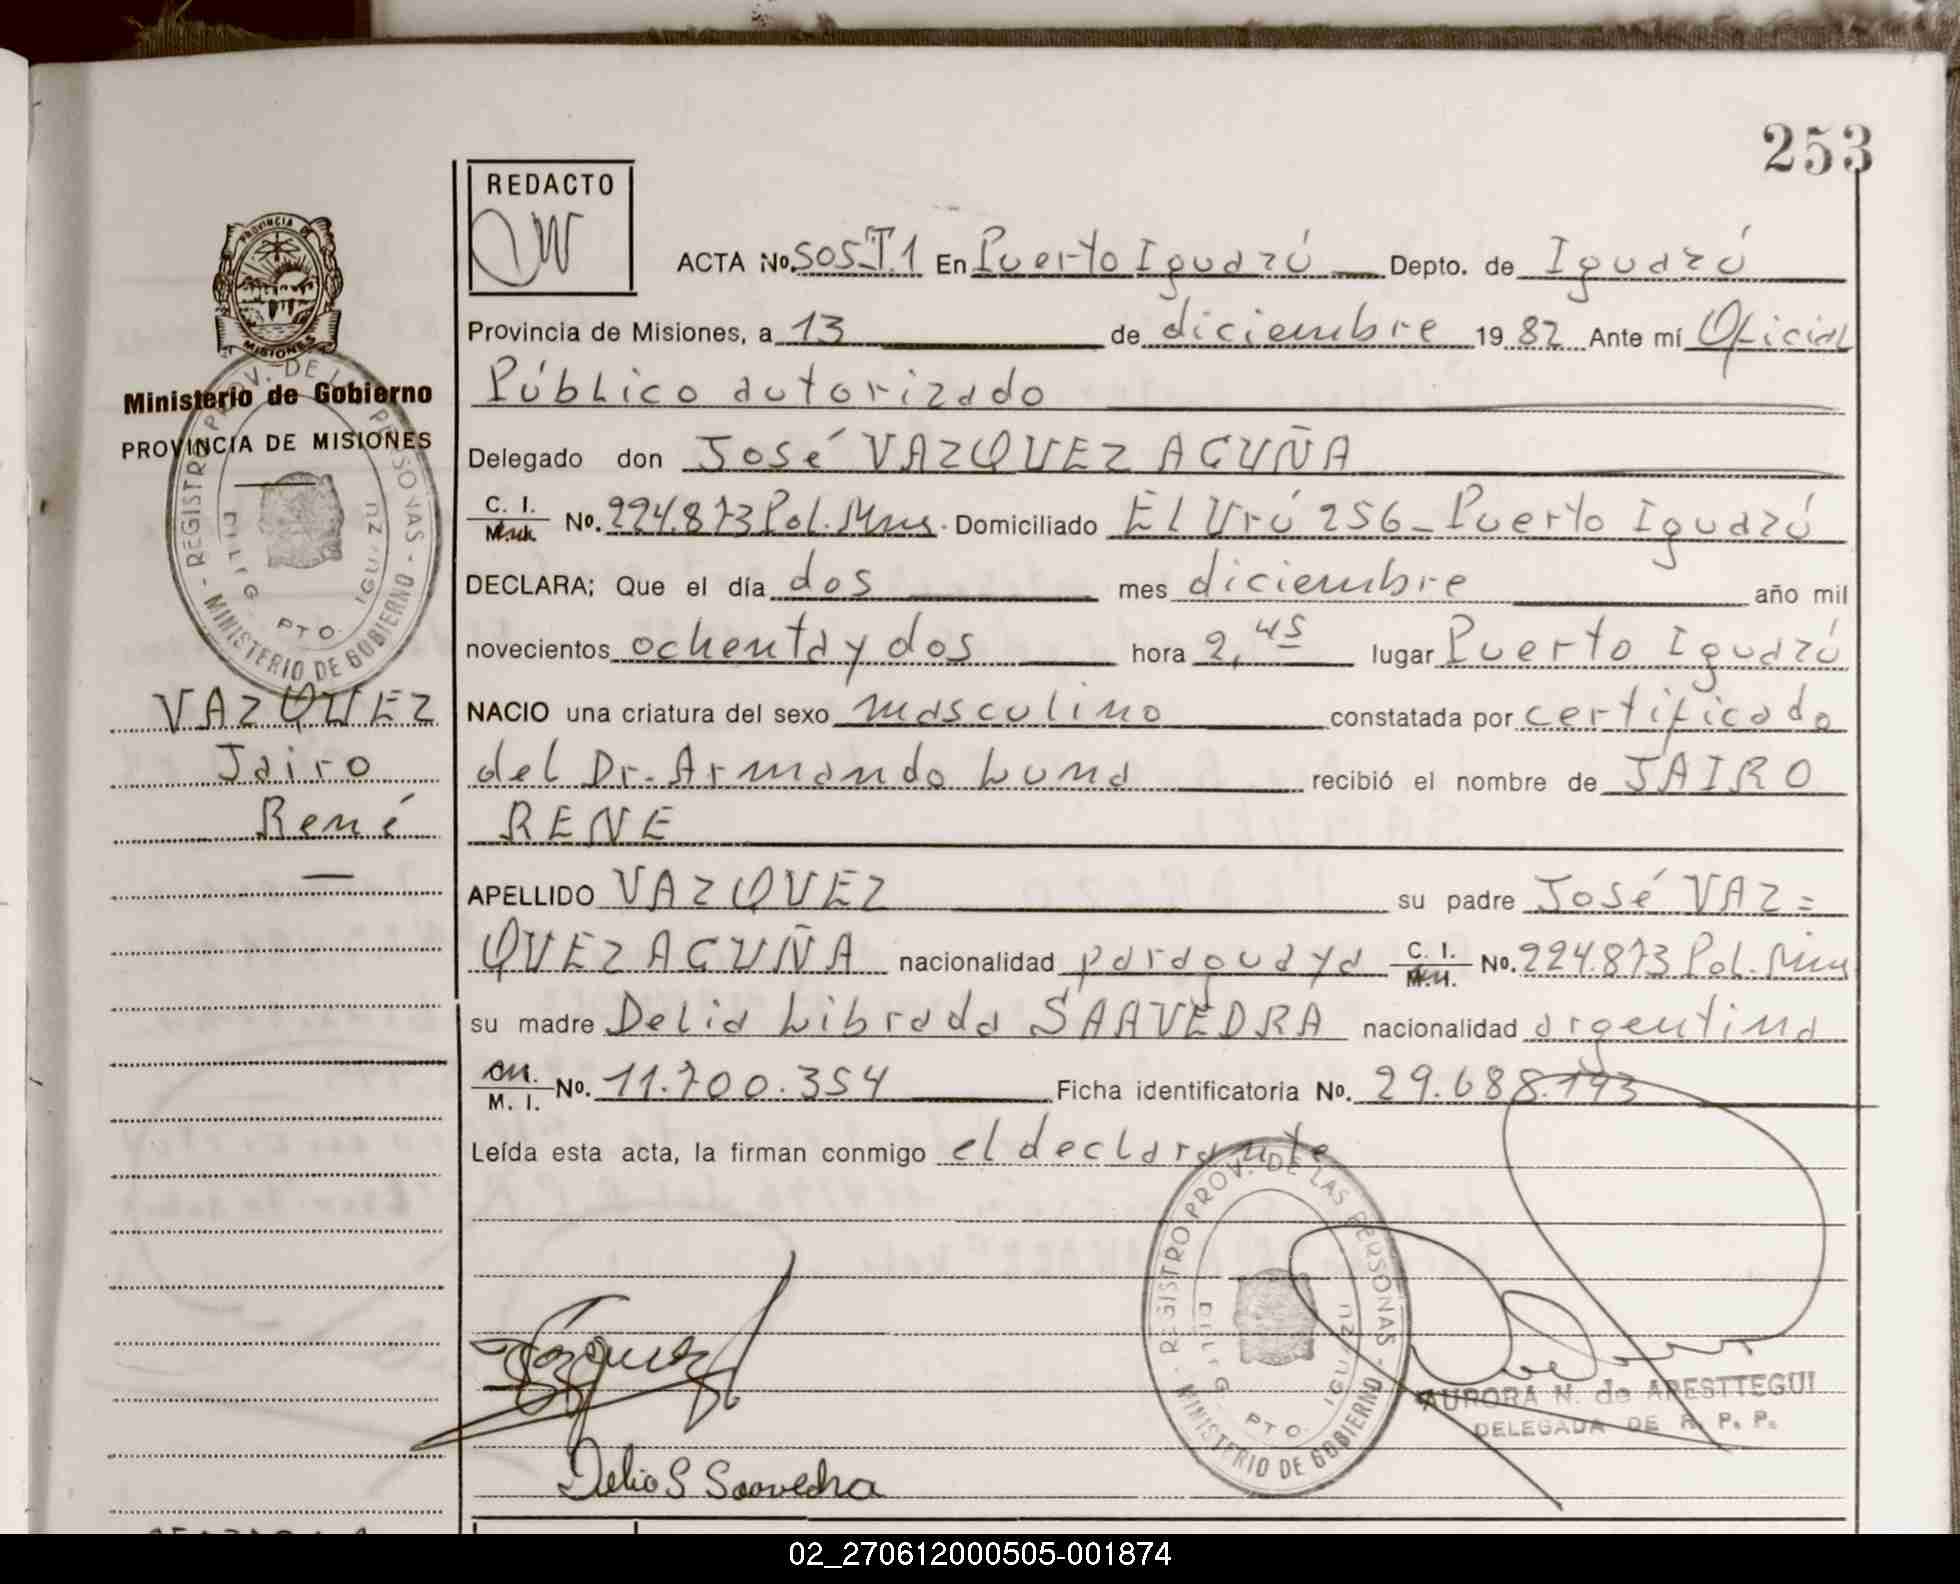 253
REDACTO
PROVINCIA DE
MISIONES
ACTA No. 505 T.1 En Puerto Iguazú Depto. de Iguazú
Provincia de Misiones, a 13 de diciembre 1982 Ante mí Oficial
Público autorizado
Delegado don José VAZQUEZ ACUÑA
C. I. No. 224.873 Pol. Mnes. Domiciliado El Urú 256 - Puerto Iguazú
DECLARA; Que el día dos mes diciembre año mil
novecientos ochenta y dos hora 2,45 lugar Puerto Iguazú
NACIO una criatura del sexo masculino constatada por certificado
del Dr. Armando Luna recibió el nombre de JAIRO
RENE
APELLIDO VAZQUEZ su padre José VAZ=
QUEZ ACUÑA nacionalidad paraguaya C. I. M. I. No. 224.873 Pol. Mnes
su madre Delia Librada SAAVEDRA nacionalidad argentina
M. I. No. 11.700.354 Ficha identificatoria No. 29.688.193
Leída esta acta, la firman conmigo el declarante
Ministerio de Gobierno
PROVINCIA DE MISIONES
- REGISTRO PROV. DE LAS PERSONAS -
MINISTERIO DE GOBIERNO
PTO. IGUAZU
VAZQUEZ
Jairo
René
- REGISTRO PROV. DE LAS PERSONAS -
MINISTERIO DE GOBIERNO
PTO. IGUAZU
Delia S Saavedra
AURORA N. de ARESTTEGUI
DELEGADA DE R. P. P.
02_270612000505-001874